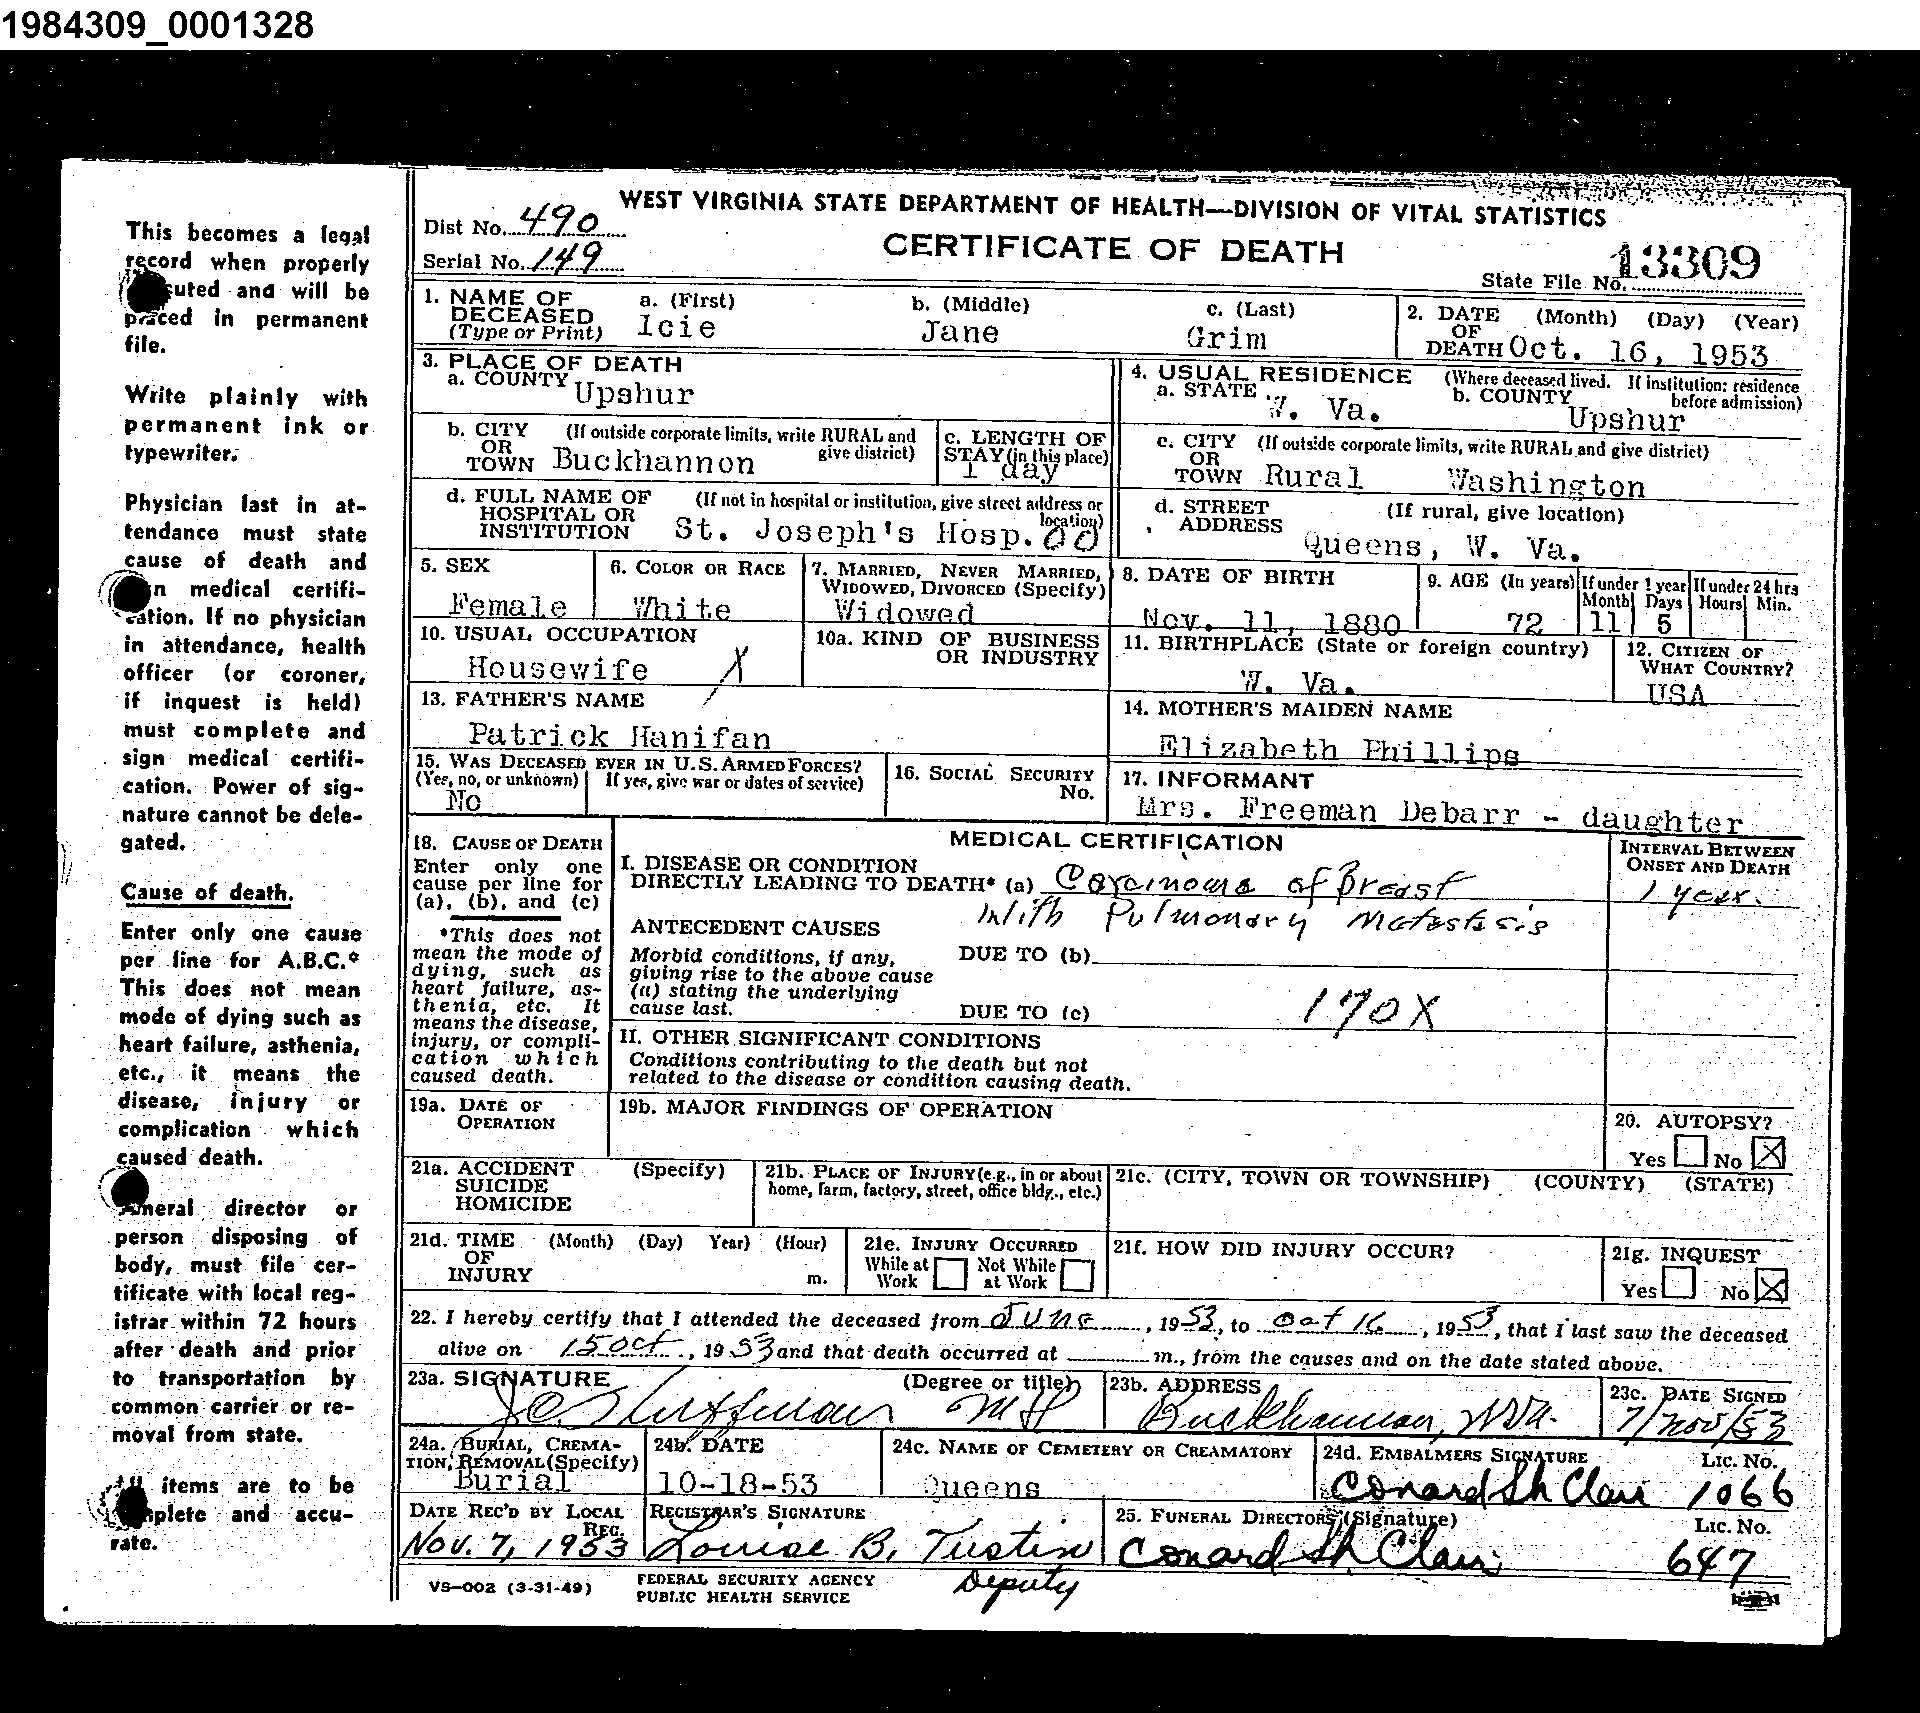 1984309_0001328
This becomes a legal
record when properly
uted and will be
placed in permanent
file.
Write plainly with
permanent ink or
typewriter.
Physician last in at-
tendance must state
cause of death and
n medical certifi-
cation. If no physician
in attendance, health
officer (or coroner,
if inquest is held)
must complete and
sign medical certifi-
cation. Power of sig-
nature cannot be dele-
gated.
Cause of death.
Enter only one cause
per line for A.B.C.*
This does not mean
mode of dying such as
heart failure, asthenia,
etc., it means the
disease, injury or
complication which
caused death.
neral director or
person disposing of
body, must file cer-
tificate with local reg-
istrar within 72 hours
after death and prior
to transportation by
common carrier or re-
moval from state.
items are to be
plete and accu-
rate.
WEST VIRGINIA STATE DEPARTMENT OF HEALTH—DIVISION OF VITAL STATISTICS
Dist No. 490
CERTIFICATE OF DEATH
Serial No. 149
State File No. 13309
1. NAME OF DECEASED (Type or Print) a. (First) b. (Middle) c. (Last)
Icie Jane Grim
2. DATE OF DEATH (Month) (Day) (Year)
Oct. 16, 1953
3. PLACE OF DEATH
a. COUNTY Upshur
4. USUAL RESIDENCE (Where deceased lived. If institution: residence before admission)
a. STATE W. Va. b. COUNTY Upshur
b. CITY OR TOWN (If outside corporate limits, write RURAL and give district) Buckhannon
c. LENGTH OF STAY (in this place) 1 day
c. CITY OR TOWN (If outside corporate limits, write RURAL and give district) Rural Washington
d. FULL NAME OF HOSPITAL OR INSTITUTION (If not in hospital or institution, give street address or location) St. Joseph's Hosp. 00
d. STREET ADDRESS (If rural, give location) Queens, W. Va.
5. SEX Female
6. COLOR OR RACE White
7. MARRIED, NEVER MARRIED, WIDOWED, DIVORCED (Specify) Widowed
8. DATE OF BIRTH Nov. 11, 1880
9. AGE (In years) 72 If under 1 year Month 11 Days 5 If under 24 hrs Hours Min.
10. USUAL OCCUPATION Housewife X
10a. KIND OF BUSINESS OR INDUSTRY
11. BIRTHPLACE (State or foreign country) W. Va.
12. CITIZEN OF WHAT COUNTRY? USA
13. FATHER'S NAME Patrick Hanifan
14. MOTHER'S MAIDEN NAME Elizabeth Phillips
15. WAS DECEASED EVER IN U.S. ARMED FORCES?
(Yes, no, or unknown) If yes, give war or dates of service)
No
16. SOCIAL SECURITY No.
17. INFORMANT
Mrs. Freeman Debarr - daughter
18. CAUSE OF DEATH
Enter only one
cause per line for
(a), (b), and (c)
*This does not
mean the mode of
dying, such as
heart failure, as-
thenia, etc. It
means the disease,
injury, or compli-
cation which
caused death.
MEDICAL CERTIFICATION
INTERVAL BETWEEN ONSET AND DEATH
I. DISEASE OR CONDITION
DIRECTLY LEADING TO DEATH* (a) Carcinoma of Breast 1 year.
With Pulmonary Metastasis
ANTECEDENT CAUSES
Morbid conditions, if any,
giving rise to the above cause
(a) stating the underlying
cause last.
DUE TO (b)
DUE TO (c) 170X
II. OTHER SIGNIFICANT CONDITIONS
Conditions contributing to the death but not
related to the disease or condition causing death.
19a. DATE OF OPERATION
19b. MAJOR FINDINGS OF OPERATION
20. AUTOPSY?
Yes No X
21a. ACCIDENT SUICIDE HOMICIDE (Specify)
21b. PLACE OF INJURY (e.g., in or about home, farm, factory, street, office bldg., etc.)
21c. (CITY, TOWN OR TOWNSHIP) (COUNTY) (STATE)
21d. TIME OF INJURY (Month) (Day) Year) (Hour) m.
21e. INJURY OCCURRED While at Work Not While at Work
21f. HOW DID INJURY OCCUR?
21g. INQUEST
Yes No X
22. I hereby certify that I attended the deceased from June, 1953, to Oct 16, 1953, that I last saw the deceased
alive on 15 Oct, 1953 and that death occurred at m., from the causes and on the date stated above.
23a. SIGNATURE (Degree or title) Huffman MD
23b. ADDRESS Buckhannon, WVa.
23c. DATE SIGNED 7/Nov/53
24a. BURIAL, CREMATION, REMOVAL (Specify) Burial
24b. DATE 10-18-53
24c. NAME OF CEMETERY OR CREAMATORY Queens
24d. EMBALMERS SIGNATURE Lic. No.
Conard St. Clair 1066
DATE REC'D BY LOCAL REG. Nov. 7, 1953
REGISTRAR'S SIGNATURE Louise B. Tustin
Deputy
25. FUNERAL DIRECTORS (Signature) Lic. No.
Conard St. Clair 647
VS-002 (3-31-49)
FEDERAL SECURITY AGENCY
PUBLIC HEALTH SERVICE